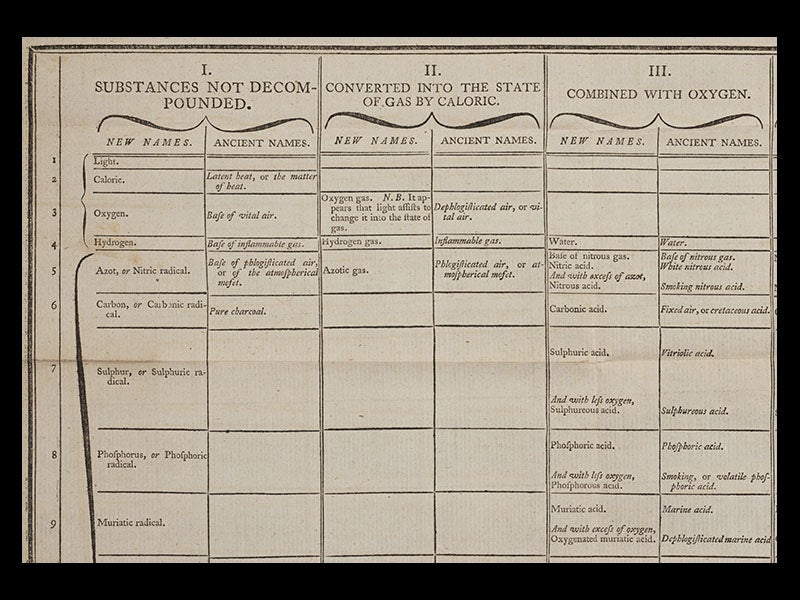 I.
SUBSTANCES NOT DECOM-
POUNDED.
NEW NAMES.
ANCIENT NAMES.
II.
CONVERTED INTO THE STATE
OF GAS BY CALORIC.
NEW NAMES.
ANCIENT NAMES.
III.
COMBINED WITH OXYGEN.
NEW NAMES.
ANCIENT NAMES.
1
Light.
2
Caloric.
Latent heat, or the matter
of heat.
3
Oxygen.
Baſe of vital air.
Oxygen gas. N. B. It ap-
pears that light aſſiſts to
change it into the ſtate of
gas.
Dephlogiſticated air, or vi-
tal air.
4
Hydrogen.
Baſe of inflammable gas.
Hydrogen gas.
Inflammable gas.
Water.
Water.
5
Azot, or Nitric radical.
Baſe of phlogiſticated air,
or of the atmoſpherical
mofet.
Azotic gas.
Phlogiſticated air, or at-
moſpherical mofet.
Baſe of nitrous gas.
Nitric acid.
And with exceſs of azot,
Nitrous acid.
Baſe of nitrous gas.
White nitrous acid.
Smoking nitrous acid.
6
Carbon, or Carbonic radi-
cal.
Pure charcoal.
Carbonic acid.
Fixed air, or cretaceous acid.
7
Sulphur, or Sulphuric ra-
dical.
Sulphuric acid.
And with leſs oxygen,
Sulphureous acid.
Vitriolic acid.
Sulphureous acid.
8
Phoſphorus, or Phoſphoric
radical.
Phoſphoric acid.
And with leſs oxygen,
Phoſphorous acid.
Phoſphoric acid.
Smoking, or volatile phoſ-
phoric acid.
9
Muriatic radical.
Muriatic acid.
And with exceſs of oxygen,
Oxygenated muriatic acid.
Marine acid.
Dephlogiſticated marine acid